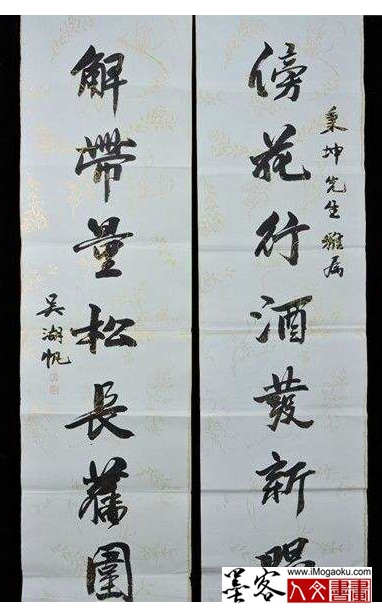 秉坤先生雅属
傍花行酒發新
解帶量松長舊圍
吴湖帆
www.iMogaoku.com
墨客
人文書畫